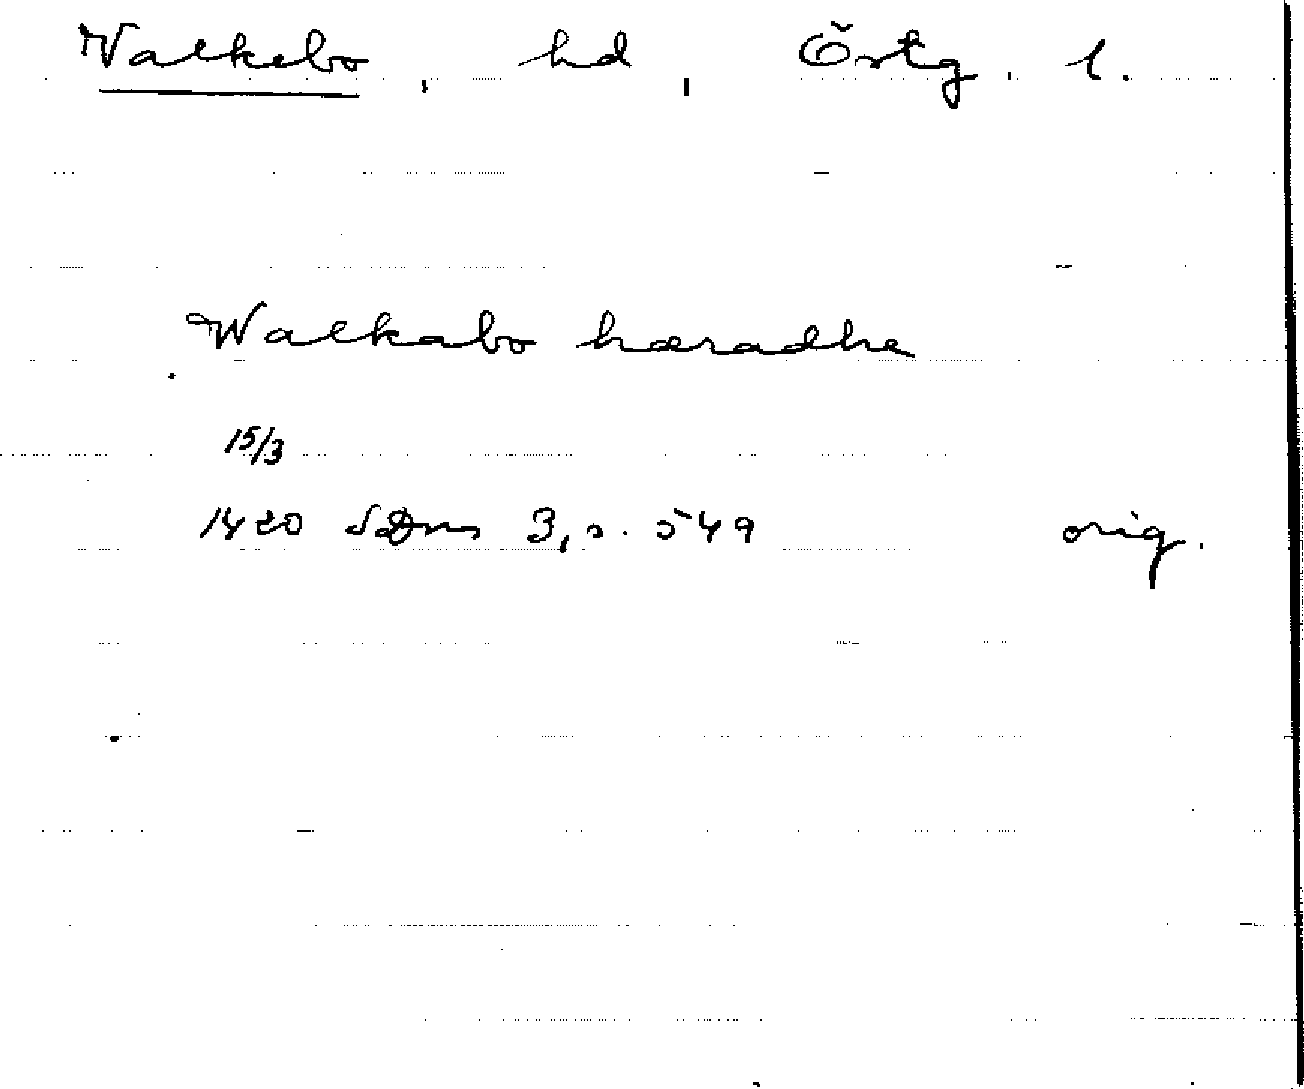 Valkebo, hd, Östg. l.
Walkabo hæradhe
15/3
1420 SDns 3, s. 549 orig.